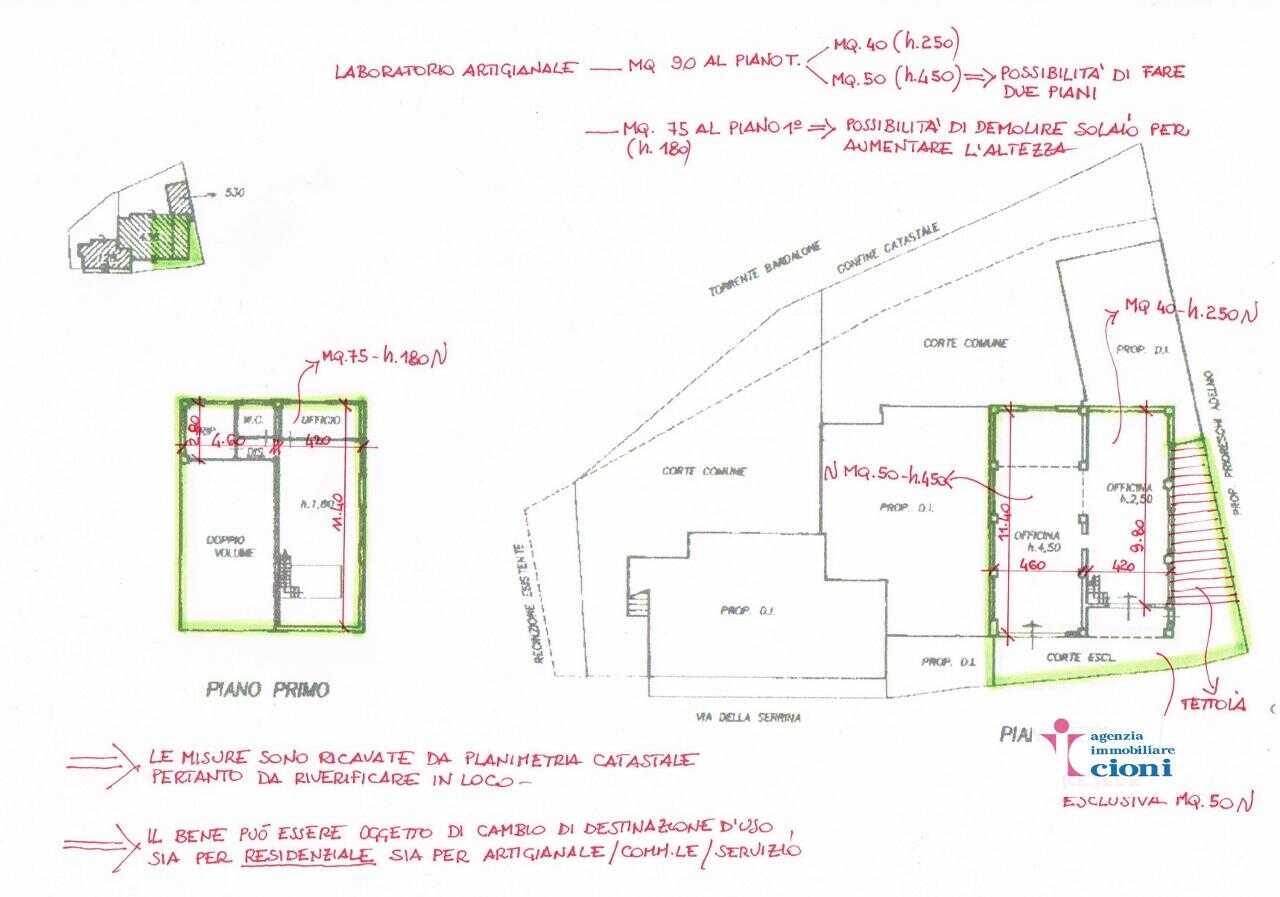 LABORATORIO ARTIGIANALE — MQ 90 AL PIANO T.
MQ. 40 (h.250)
MQ. 50 (h.450) ⇒ POSSIBILITA' DI FARE
DUE PIANI
— MQ. 75 AL PIANO 1º ⇒ POSSIBILITA' DI DEMOLIRE SOLAIO PER
(h. 180)
AUMENTARE L'ALTEZZA
530
TORRENTE BARDALONE
CONFINE CATASTALE
MQ 40-h.250 N
CORTE COMUNE
PROP. D.I.
PROP. PRIORESCHI ADELMO
MQ.75-h.180 N
W.C.
UFFICIO
2.80
RIP.
4.60
420
DIS.
h.1,80
11.40
DOPPIO
VOLUME
PIANO PRIMO
CORTE COMUNE
N MQ.50-h.450
PROP. D.I.
OFFICINA
h.2,50
OFFICINA
h.4,50
11.40
9.80
460
420
RECINZIONE ESISTENTE
PROP. D.I.
PROP. D.I.
CORTE ESCL.
TETTOIA
VIA DELLA SERRINA
PIAN
agenzia
immobiliare
cioni
ESCLUSIVA MQ.50 N
⇒ LE MISURE SONO RICAVATE DA PLANIMETRIA CATASTALE
PERTANTO DA RIVERIFICARE IN LOCO –
⇒ IL BENE PUÓ ESSERE OGGETTO DI CAMBIO DI DESTINAZIONE D'USO,
SIA PER RESIDENZIALE SIA PER ARTIGIANALE/COMM.LE/SERVIZIO